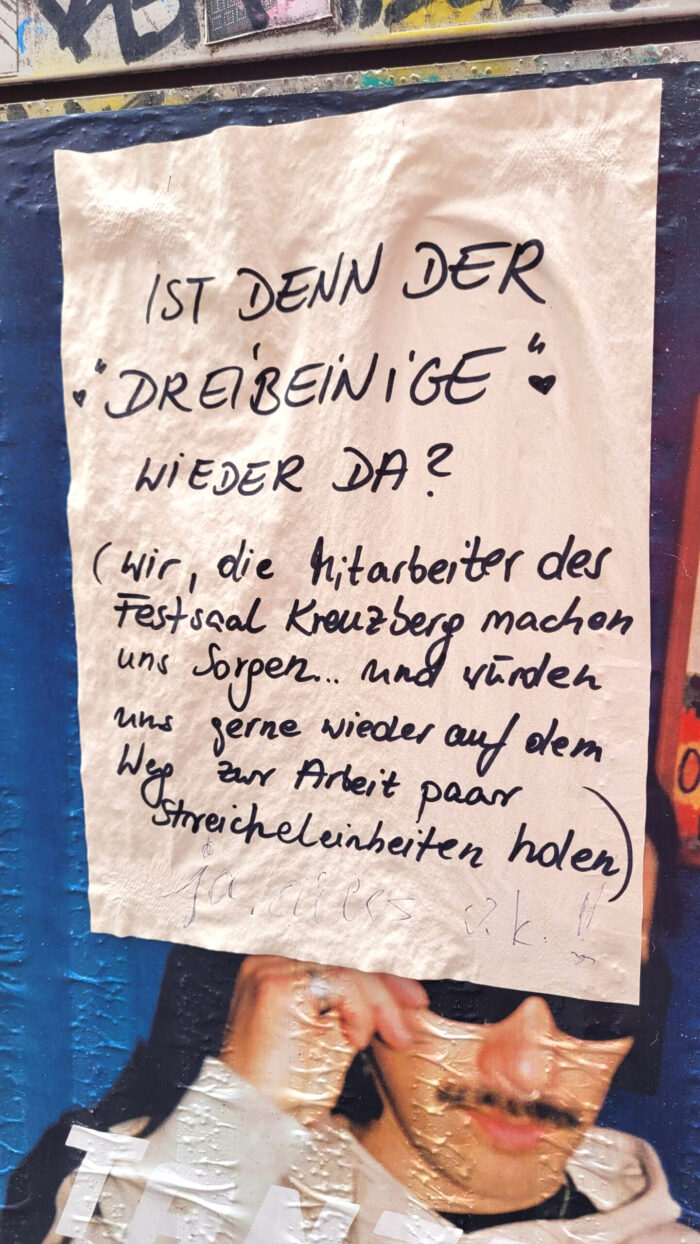 IST DENN DER
"DREIBEINIGE"
WIEDER DA?
(wir, die Mitarbeiter des
Festsaal Kreuzberg machen
uns Sorgen... und würden
uns gerne wieder auf dem
Weg zur Arbeit paar
Streicheleinheiten holen)
ja, alles o.k.!!
TANZ